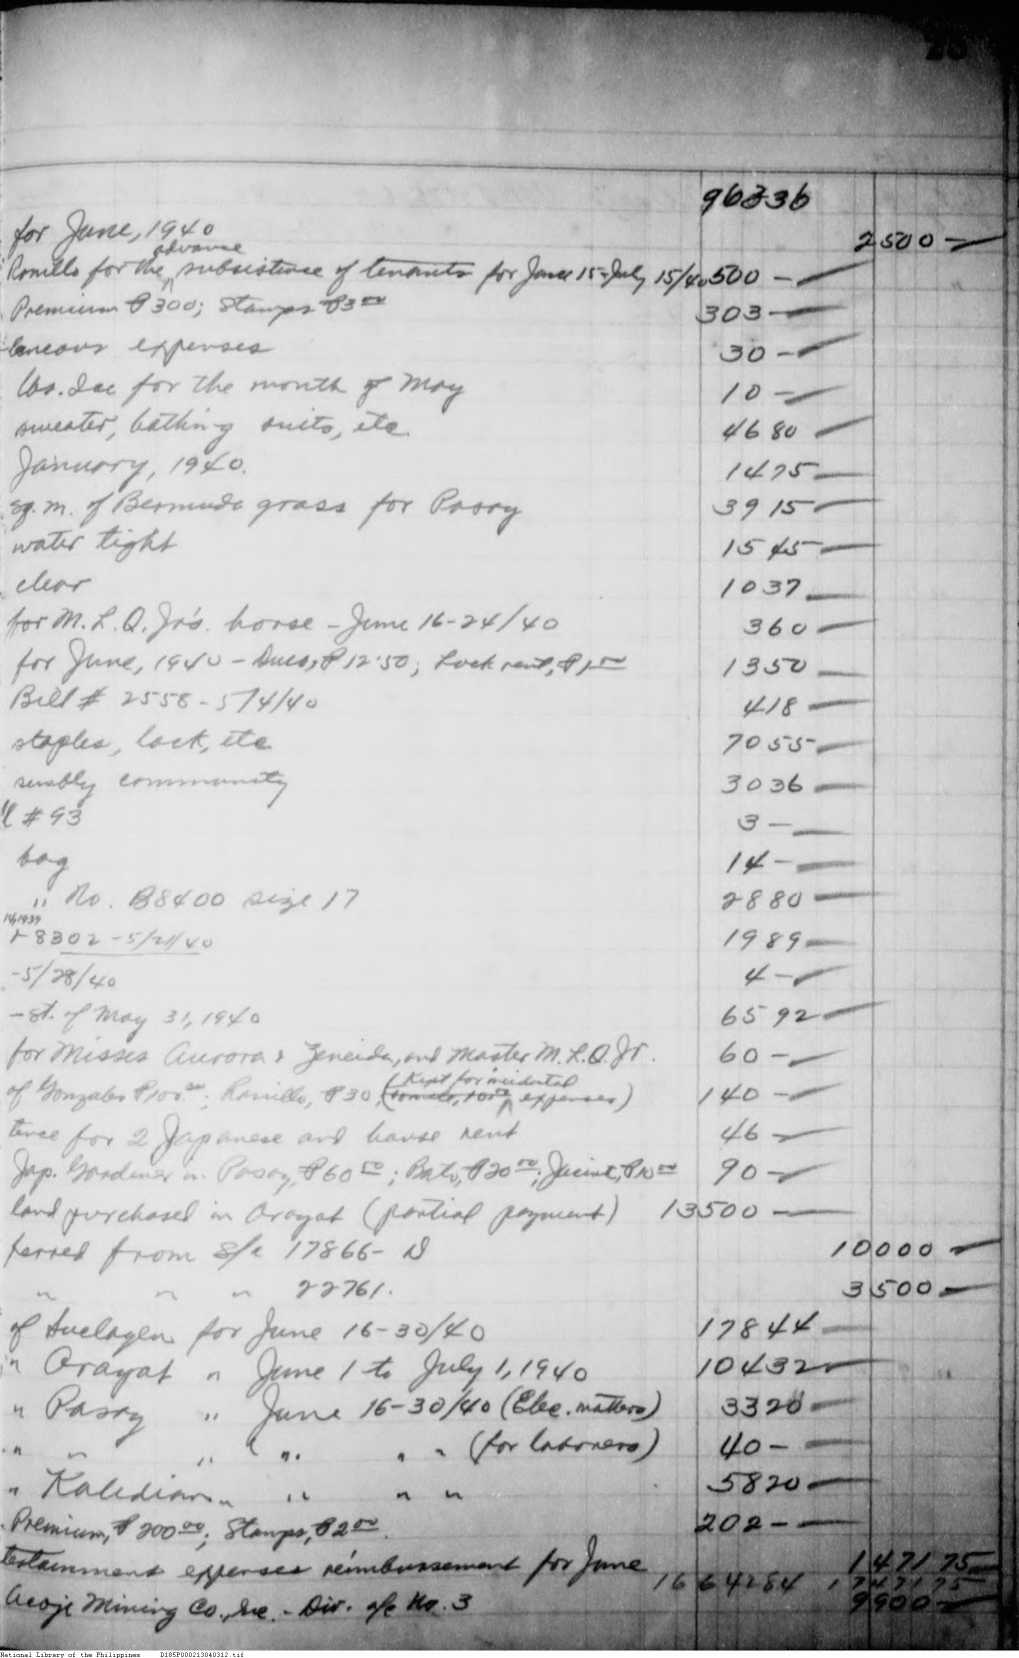 28
96336
for June, 1940 2500 —
Romillo for the advance subsistence of tenants for June 15-July 15/40 500 —
Premium ₱300; Stamps ₱3.00 303 —
laneous expenses 30 —
lbs. Ice for the month of May 10 —
sweater, bathing suits, etc. 4680
January, 1940. 1475
sq. m. of Bermuda grass for Pasay 3915
water tight 1545
clear 1037
for M. L. Q. Jr's. horse - June 16-24/40 360
for June, 1940 - Dues, ₱12.50; Lock rent, ₱1.00 1350
Bill # 2558 - 5/4/40 418
staples, lock, etc. 7055
sembly community 3036
# 93 3 —
bag 14 —
" No. B8400 size 17 2880
8302 - 5/21/40 1989
-5/28/40 4 —
- st. of May 31, 1940 6592
for Misses Aurora & Zeneida, and Master M. L. Q. Jr. 60 —
of Gonzales ₱100.00; Romillo, ₱30, (Kept for incidental expenses) 140 —
tence for 2 Japanese and house rent 46 —
Jap. Gardiner in Pasay, ₱60.00; Bato, ₱20.00; Jacint, ₱10.00 90 —
land purchased in Arayat (partial payment) 13500 —
ferred from S/a 17866- D 10000 —
" " " 22761. 3500 —
of for June 16-30/40 17844
" Arayat " June 1 to July 1, 1940 10432
" Pasay " June 16-30/40 (Elec. matters) 3320
" " " " " " (for laborers) 40 —
" Kaledian " " " " 5820
Premium, ₱200.00; Stamps, ₱2.00. 202 —
tertainment expenses reimbursement for June 147175
1664284 1747175
Acoje Mining Co., Inc. - Div. a/c No. 3 9900 —
National Library of the Philippines D185P000213040312.tif